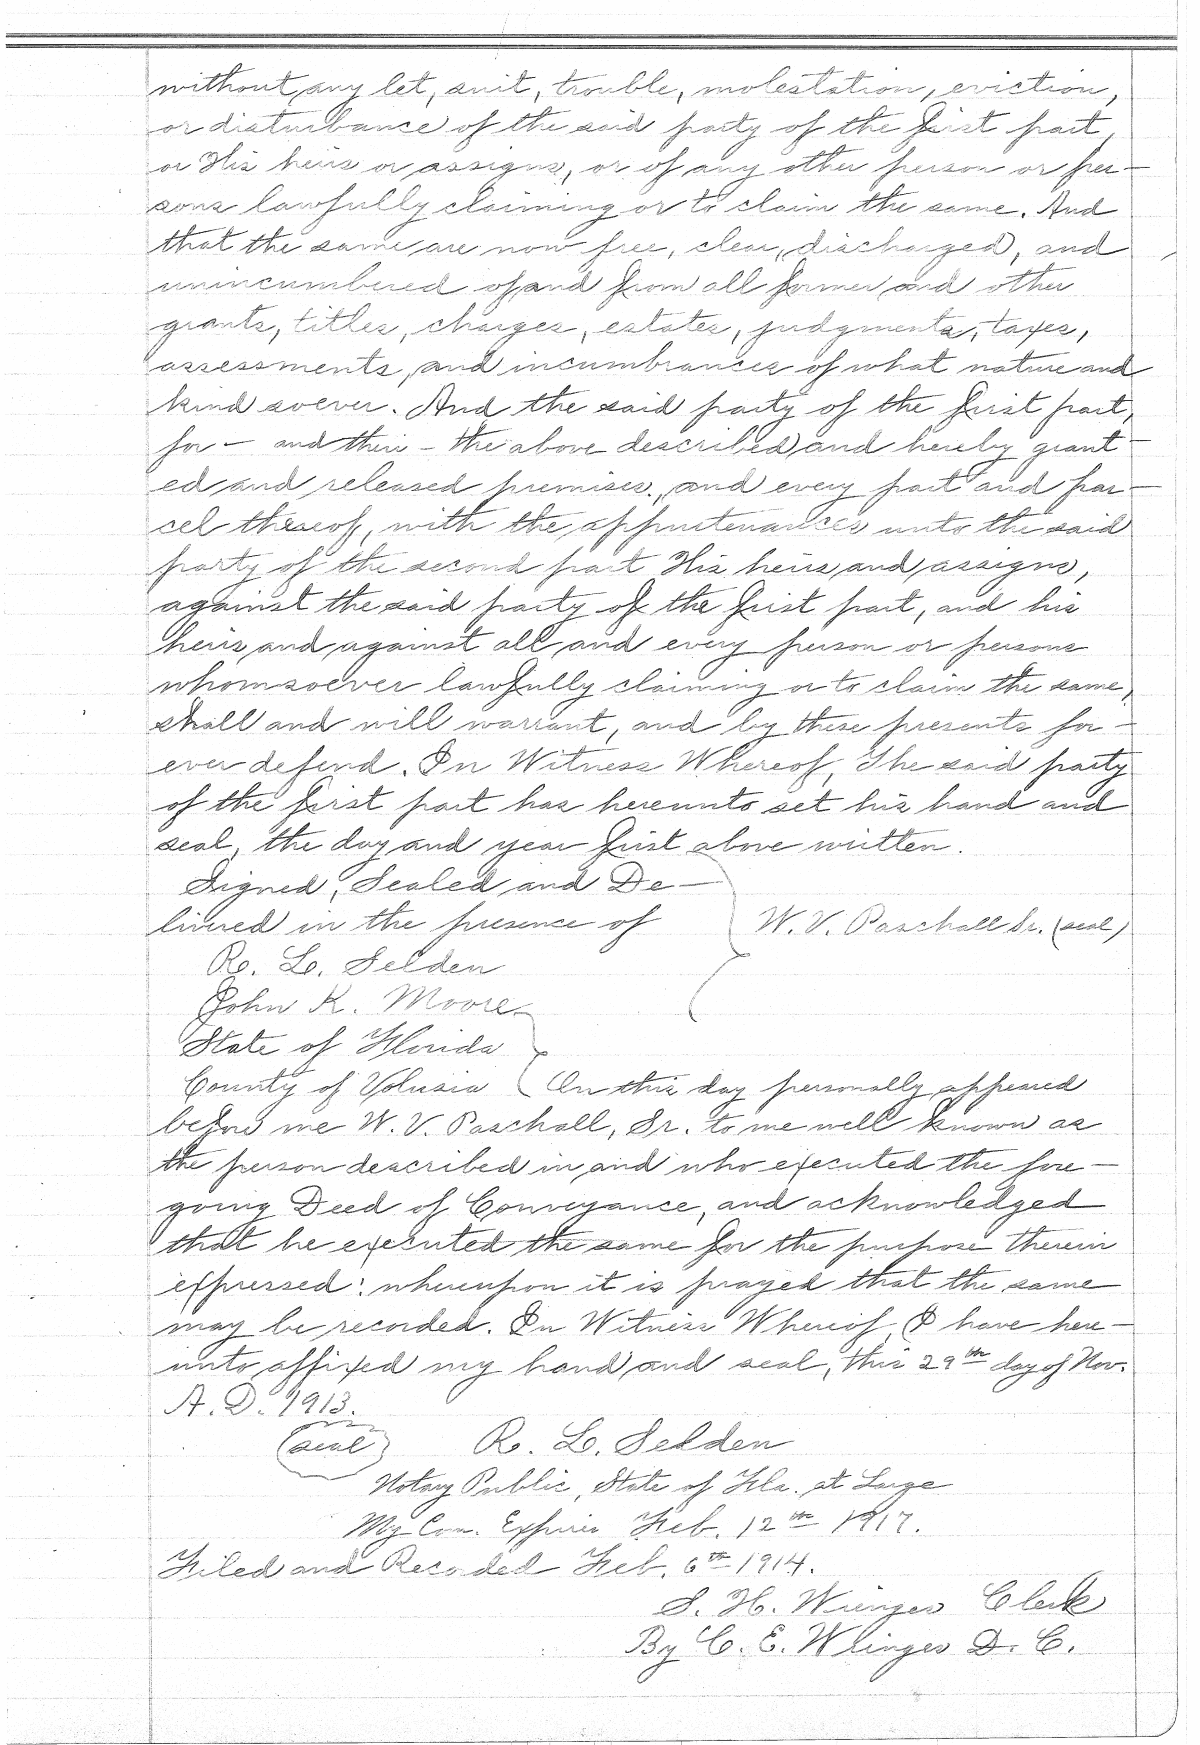 without any let, suit, trouble, molestation, eviction,
or disturbance of the said party of the first part,
or His heirs or assigns, or of any other person or per-
sons lawfully claiming or to claim the same. And
that the same are now free, clear, discharged, and
unincumbered of and from all former and other
grants, titles, charges, estates, judgments, taxes,
assessments, and incumbrances of what nature and
kind soever. And the said party of the first part,
for - and their - the above described and hereby grant-
ed and released premises, and every part and par-
cel thereof, with the appurtenances unto the said
party of the second part His heirs and assigns,
against the said party of the first part, and his
heirs and against all and every person or persons
whomsoever lawfully claiming or to claim the same,
shall and will warrant, and by these presents for-
ever defend. In Witness Whereof, The said party
of the first part has hereunto set his hand and
seal, the day and year first above written.
Signed, Sealed and De-
livered in the presence of W. V. Paschall Sr. (seal)
R. L. Selden
John K. Moore
State of Florida
County of Volusia On this day personally appeared
before me W. V. Paschall, Sr. to me well known as
the person described in and who executed the fore-
going Deed of Conveyance, and acknowledged
that he executed the same for the purpose therein
expressed: whereupon it is prayed that the same
may be recorded. In Witness Whereof, I have here-
unto affixed my hand and seal, this 29th day of Nov.
A. D. 1913.
(seal) R. L. Selden
Notary Public, State of Fla. at Large
My Com. Expires Feb. 12th 1917.
Filed and Recorded Feb. 6th 1914.
S. H. Clerk
By C. E. D. C.